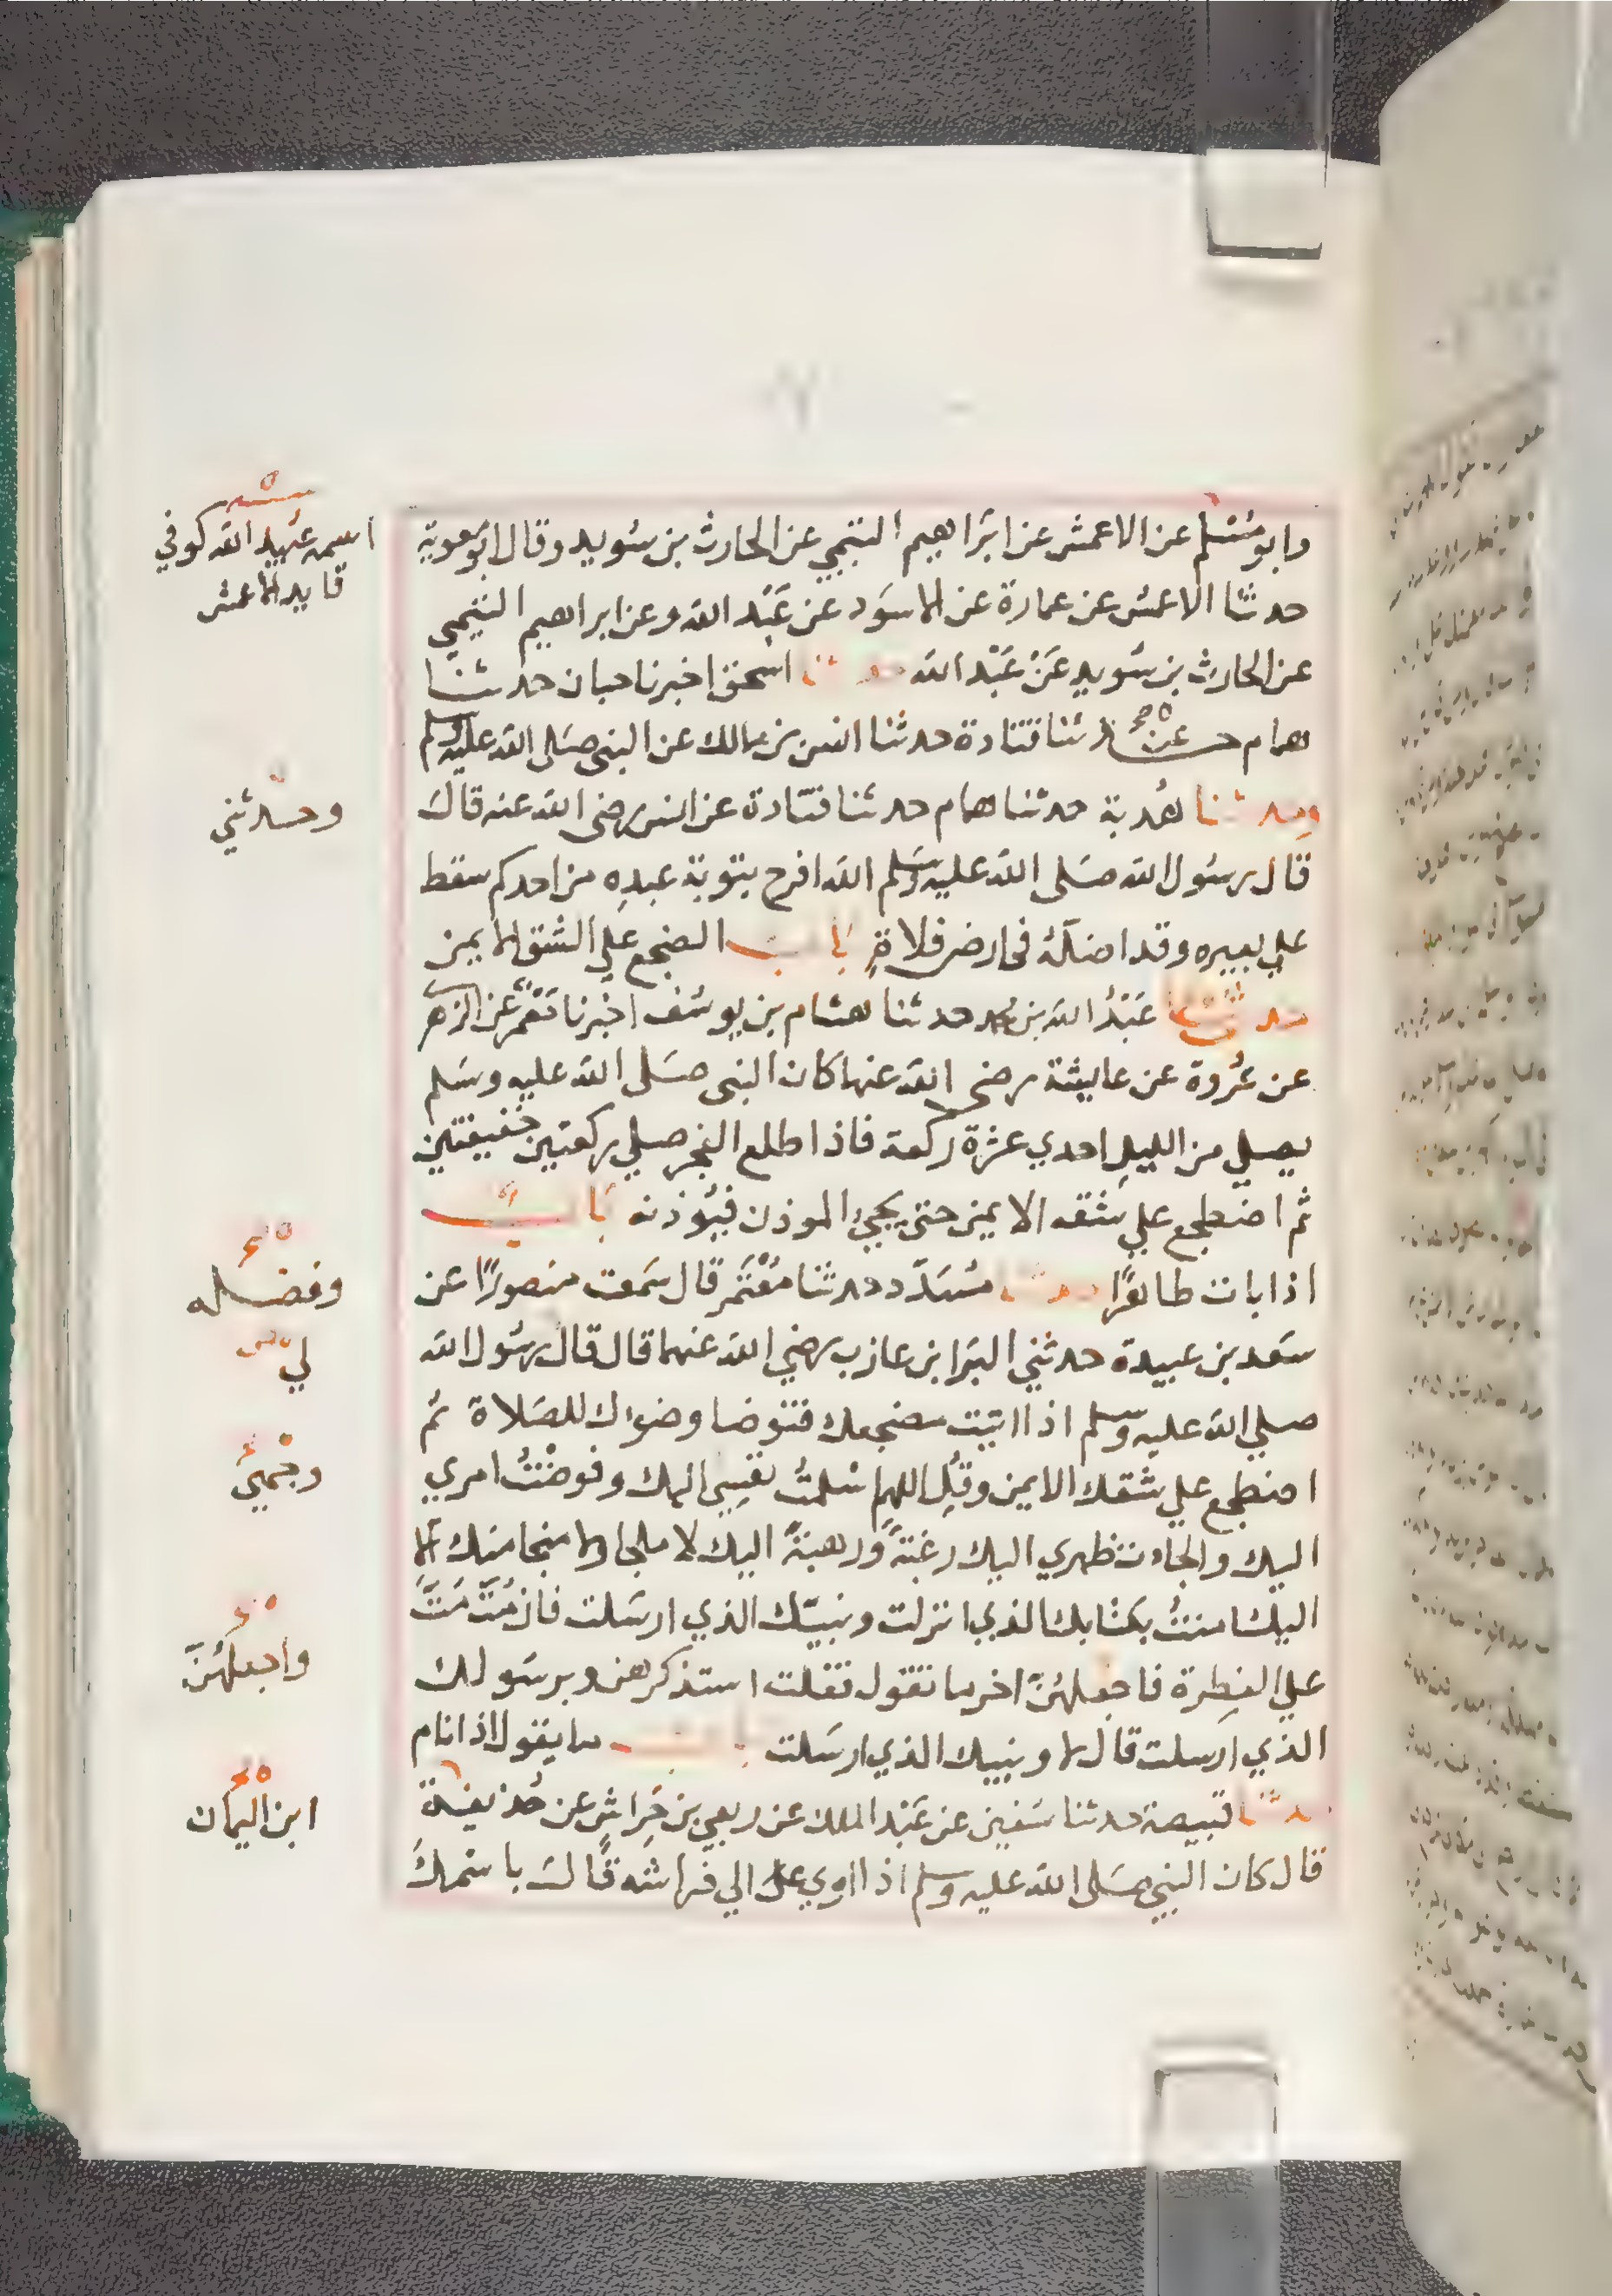 وابو مُسْلم عن الاعمش عن ابرَاهيم التيمي عن الحارث بن سُويد وقال ابو معوية
حدثنا الاعمش عن عمارة عن الاسوَد عن عَبْد الله وعن ابراهيم التيمي
عن الحارث بن سُويد عَنْ عَبْد الله حدثنا اسحق اخبرنا حبان حدثنا
همام حدثنا قتادة حدثنا انس بن مالك عن النبي صَلى الله عليه وسلم
وحدثنا هُدبة حدثنا همام حدثنا قتادة عن انس رضى الله عنه قالَ
قال رسُول الله صَلى الله عليه وسَلم الله افرح بتوبة عبدِه من احدكم سقط
علي بعيره وقد اضلَّهُ في ارض فلاةٍ بَاب الضجع علي الشق الايمن
حدثنا عَبْدُ الله بن محمد حدثنا هشام بن يوسُف اخبرنا مَعْمَرٌ عن الزهري
عن عُرْوة عن عايشة رضى الله عنها كان النبى صَلى الله عليه وسَلم
يصلي من الليلِ احدي عشرة ركعة فاذا طلع الفجر صلي ركعتين خفيفتين
ثم اضطجع علي شقه الايمن حتى يجئ الموذن فيُوذنه بَاب
اذا بات طاهرًا حدثنا مُسَدَّد حدثنا مُعْتَمر قال سَمعت منصورًا عن
سَعد بن عبيدة حدثني البَرا بن عازب رضي الله عنهما قال قال رسُول الله
صلي الله عليه وسلم اذا اتيت مضجعك فتوضا وضوءك للصَلاة ثم
اضطجع علي شقك الايمن وقُلِ اللهم اسْلمتُ نفسِي اليك وفوضْتُ امري
اليك والجات ظهري اليك رغبَةً وَرهبةً اليك لا ملجا ولا منجا منك الا
اليك امنتُ بكتابك الذي انزلت ونبيّك الذي ارسَلت فان مُتَّ مُتَّ
علي الفِطرة فاجعلهُنَّ اخر ما تقول فقلت استذكرهن وبرسَولك
الذي ارسلت قال لا ونبيك الذي ارسَلت باب ما يقول اذا نام
حدثنا قبيصة حدثنا سَفين عن عَبْد الملك عن ربعي بن حِراشٍ عن حُذيفة
قال كان النبي صَلى الله عليه وسلم اذا اوي الي فراشه قالَ باسْمكَ
اسمه عُبيد الله كوفي
قايد الاعمش
عن
وحدثني
وفضله
لي
وجْهيَ
واجعلهُنَّ
ابن اليمان